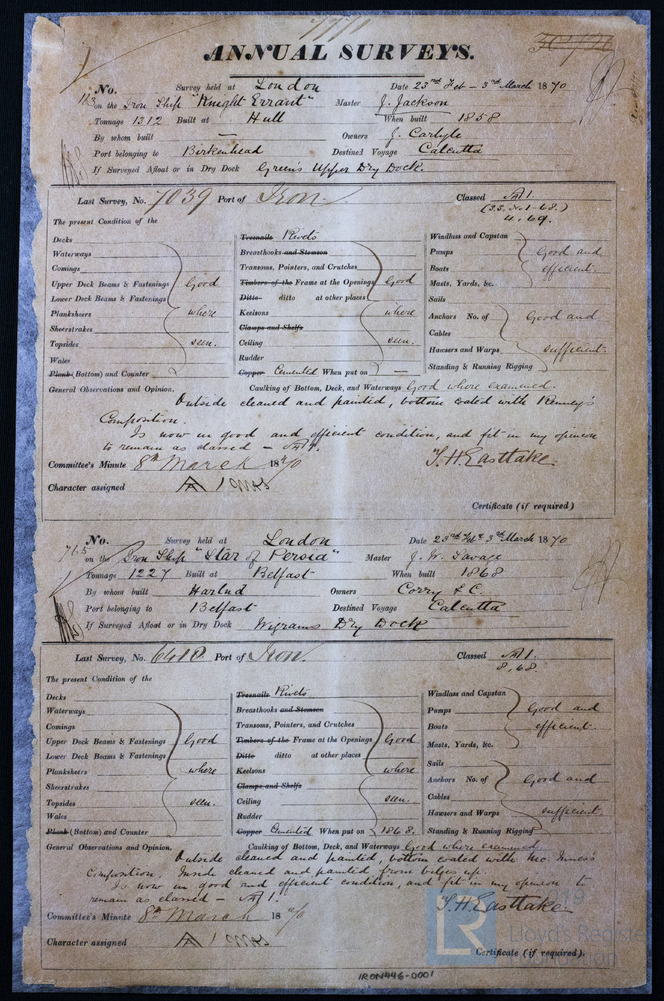 ANNUAL SURVEYS.
No. Survey held at London Date 23rd Feb - 3rd March 1870
on the Iron Ship "Knight Errant" Master J. Jackson
Tonnage 1312 Built at Hull When built 1858
By whom built — Owners J. Carlyle
Port belonging to Birkenhead Destined Voyage Calcutta
If Surveyed Afloat or in Dry Dock Green's Upper Dry Dock.
Last Survey, No. 7039 Port of Iron. Classed A1.
(S.S. No.1-68.)
4.69.
The present Condition of the
Decks Treenails Rivets Windlass and Capstan
Waterways Breasthooks and Stemson Pumps Good and
Comings Transoms, Pointers, and Crutches Boats efficient.
Upper Deck Beams & Fastenings Good Timbers of the Frame at the Openings Good Masts, Yards, &c.
Lower Deck Beams & Fastenings Ditto ditto at other places Sails
Planksheers where Keelsons where Anchors No. of Good and
Sheerstrakes Clamps and Shelfs Cables
Topsides seen. Ceiling seen. Hawsers and Warps sufficient.
Wales Rudder Standing & Running Rigging
Plank (Bottom) and Counter Copper Cemented When put on —
General Observations and Opinion. Caulking of Bottom, Deck, and Waterways Good where examined.
Outside cleaned and painted, bottom coated with Kenney's
Composition.
Is now in good and efficient condition, and fit in my opinion
to remain as classed – A1.
Committee's Minute 8th March 1870 T.H. Eastlake.
Character assigned A 1
Certificate (if required)
No. Survey held at London Date 23rd Feb & 3rd March 1870
765 on the Iron Ship "Star of Persia" Master J. W. Savage
Tonnage 1227 Built at Belfast When built 1868
By whom built Harlnd Owners Corry & C.
Port belonging to Belfast Destined Voyage Calcutta
If Surveyed Afloat or in Dry Dock Wigrams Dry Dock
Last Survey, No. 6410 Port of Iron. Classed A1.
8,68
The present Condition of the
Decks Treenails Rivets Windlass and Capstan
Waterways Breasthooks and Stemson Pumps Good and
Comings Transoms, Pointers, and Crutches Boats efficient.
Upper Deck Beams & Fastenings Good Timbers of the Frame at the Openings Good Masts, Yards, &c.
Lower Deck Beams & Fastenings Ditto ditto at other places Sails
Planksheers where Keelsons where Anchors No. of Good and
Sheerstrakes Clamps and Shelfs Cables
Topsides seen. Ceiling seen. Hawsers and Warps sufficient.
Wales Rudder Standing & Running Rigging
Plank (Bottom) and Counter Copper Cemented When put on 1868.
General Observations and Opinion. Caulking of Bottom, Deck, and Waterways Good where examined
Outside cleaned and painted, bottom coated with Mc. Inness's
Composition. Inside cleaned and painted from bilges up.
Is now in good and efficient condition, and fit in my opinion to
remain as classed – A1.
Committee's Minute 8th March 1870 T.H. Eastlake.
Character assigned A 1
Certificate (if required).
LR
Lloyd's Register
Foundation
IRON446-0001